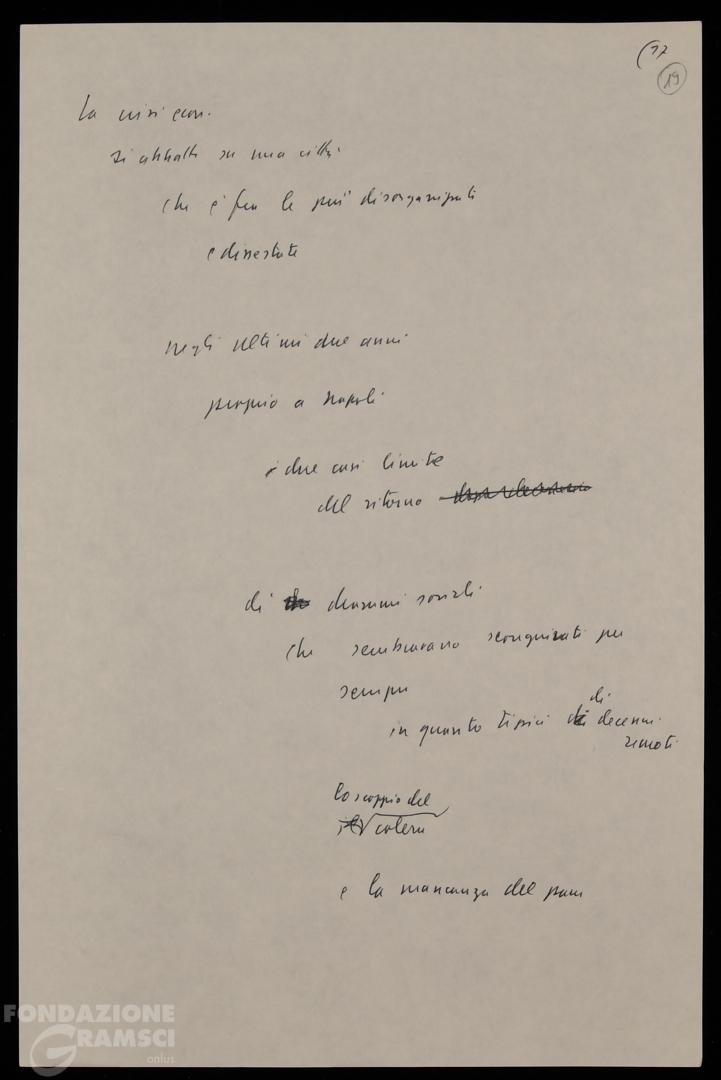 (17
19
la crisi econ.
si abbatte su una città
che è fra le più disorganizzate
e dissestate
negli ultimi due anni
proprio a Napoli
i due casi limite
del ritorno
di drammi sociali
che sembravano scongiurati per
sempre
in quanto tipici di decenni
remoti
lo scoppio del
colera
e la mancanza del pane
FONDAZIONE
GRAMSCI
onlus